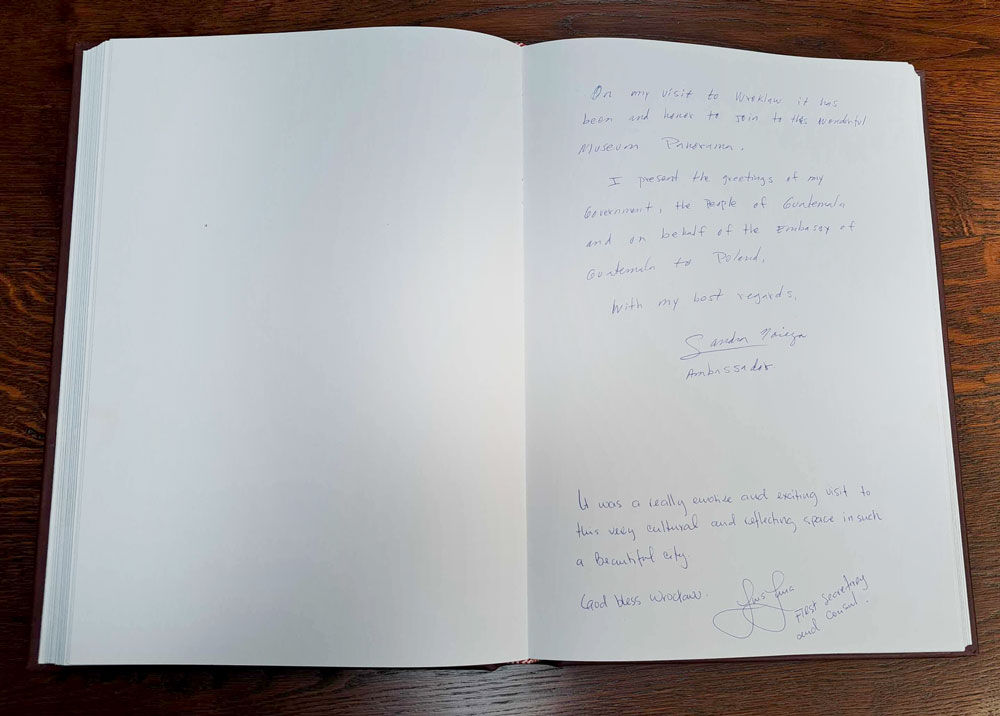 On my visit to Wroklaw it has
been and honor to join to this wonderful
Museum Panorama.
I present the greetings of my
Government, the People of Guatemala
and on behalf of the Embassy of
Guatemala to Poland.
With my best regards,
Sandra Noriega
Ambassador
It was a really emotive and exciting visit to
this very cultural and reflecting space in such
a beautiful city.
God bless Wrocław.
First Secretary
and consul.